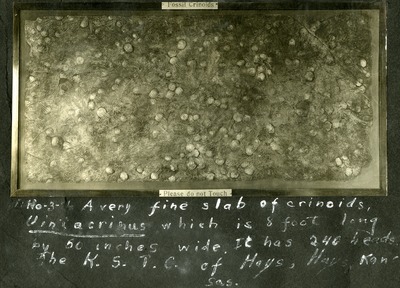 Fossil Crinoids
Please do not Touch
No-3- A very fine slab of crinoids,
Uintacrinus which is 8 foot long
by 50 inches wide. It has 246 heads.
The K. S. T. C. of Hays, Hays, Kan-
sas.